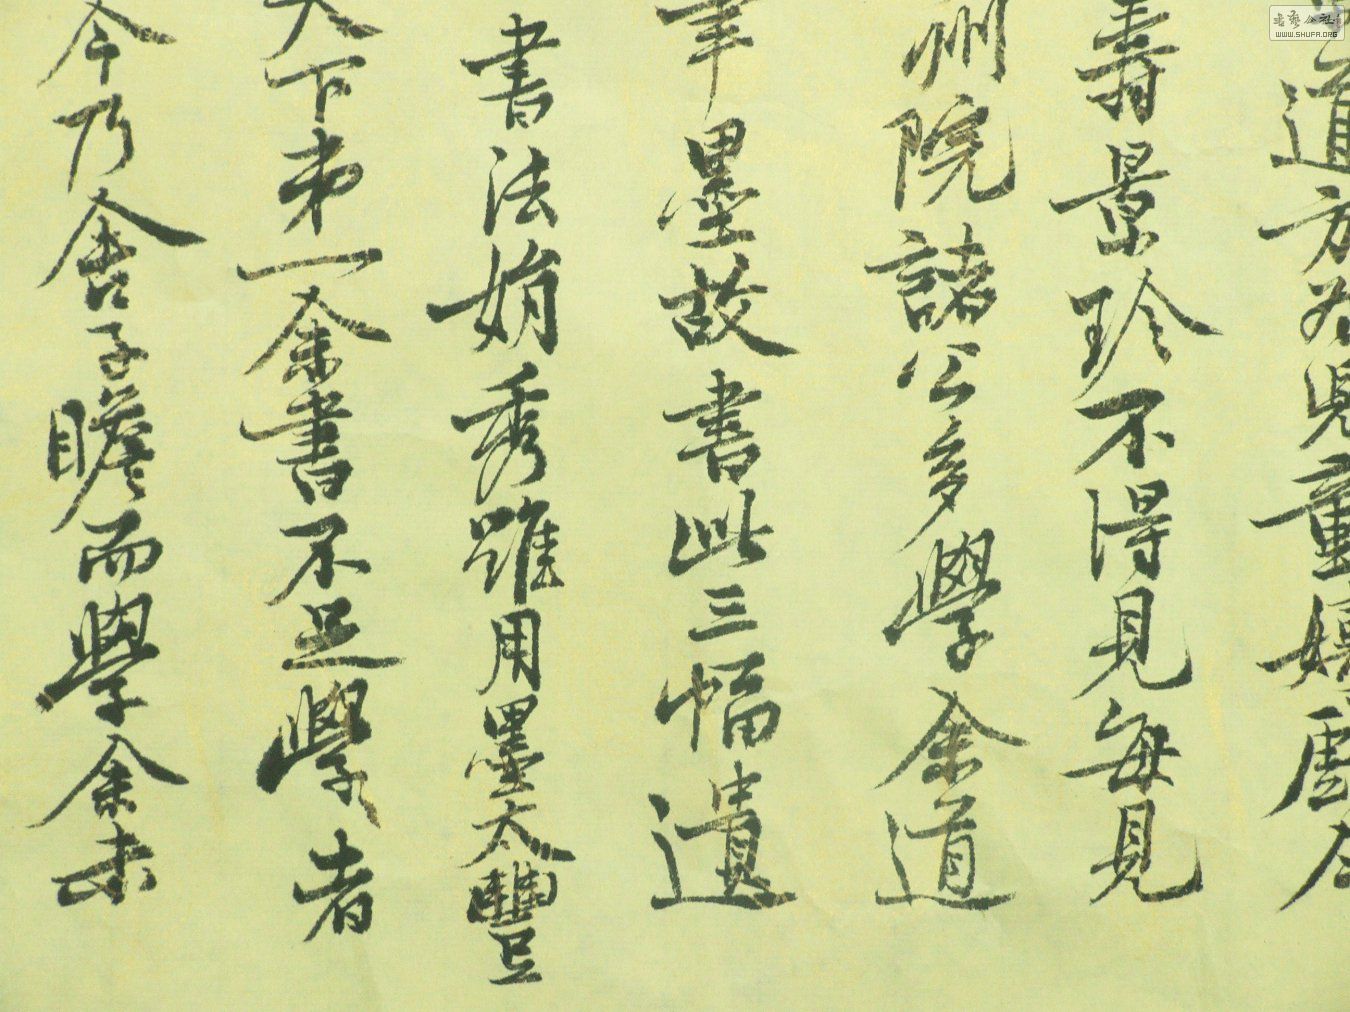 道方為兒童嬉戲今
壽景珍不得見每見
州院諸公多學余道
筆墨故書此三幅遺
書法娟秀雖用墨太豐
天下第一余書不足學者
今乃舍子瞻而學余未
书艺公社
WWW.SHUFA.ORG